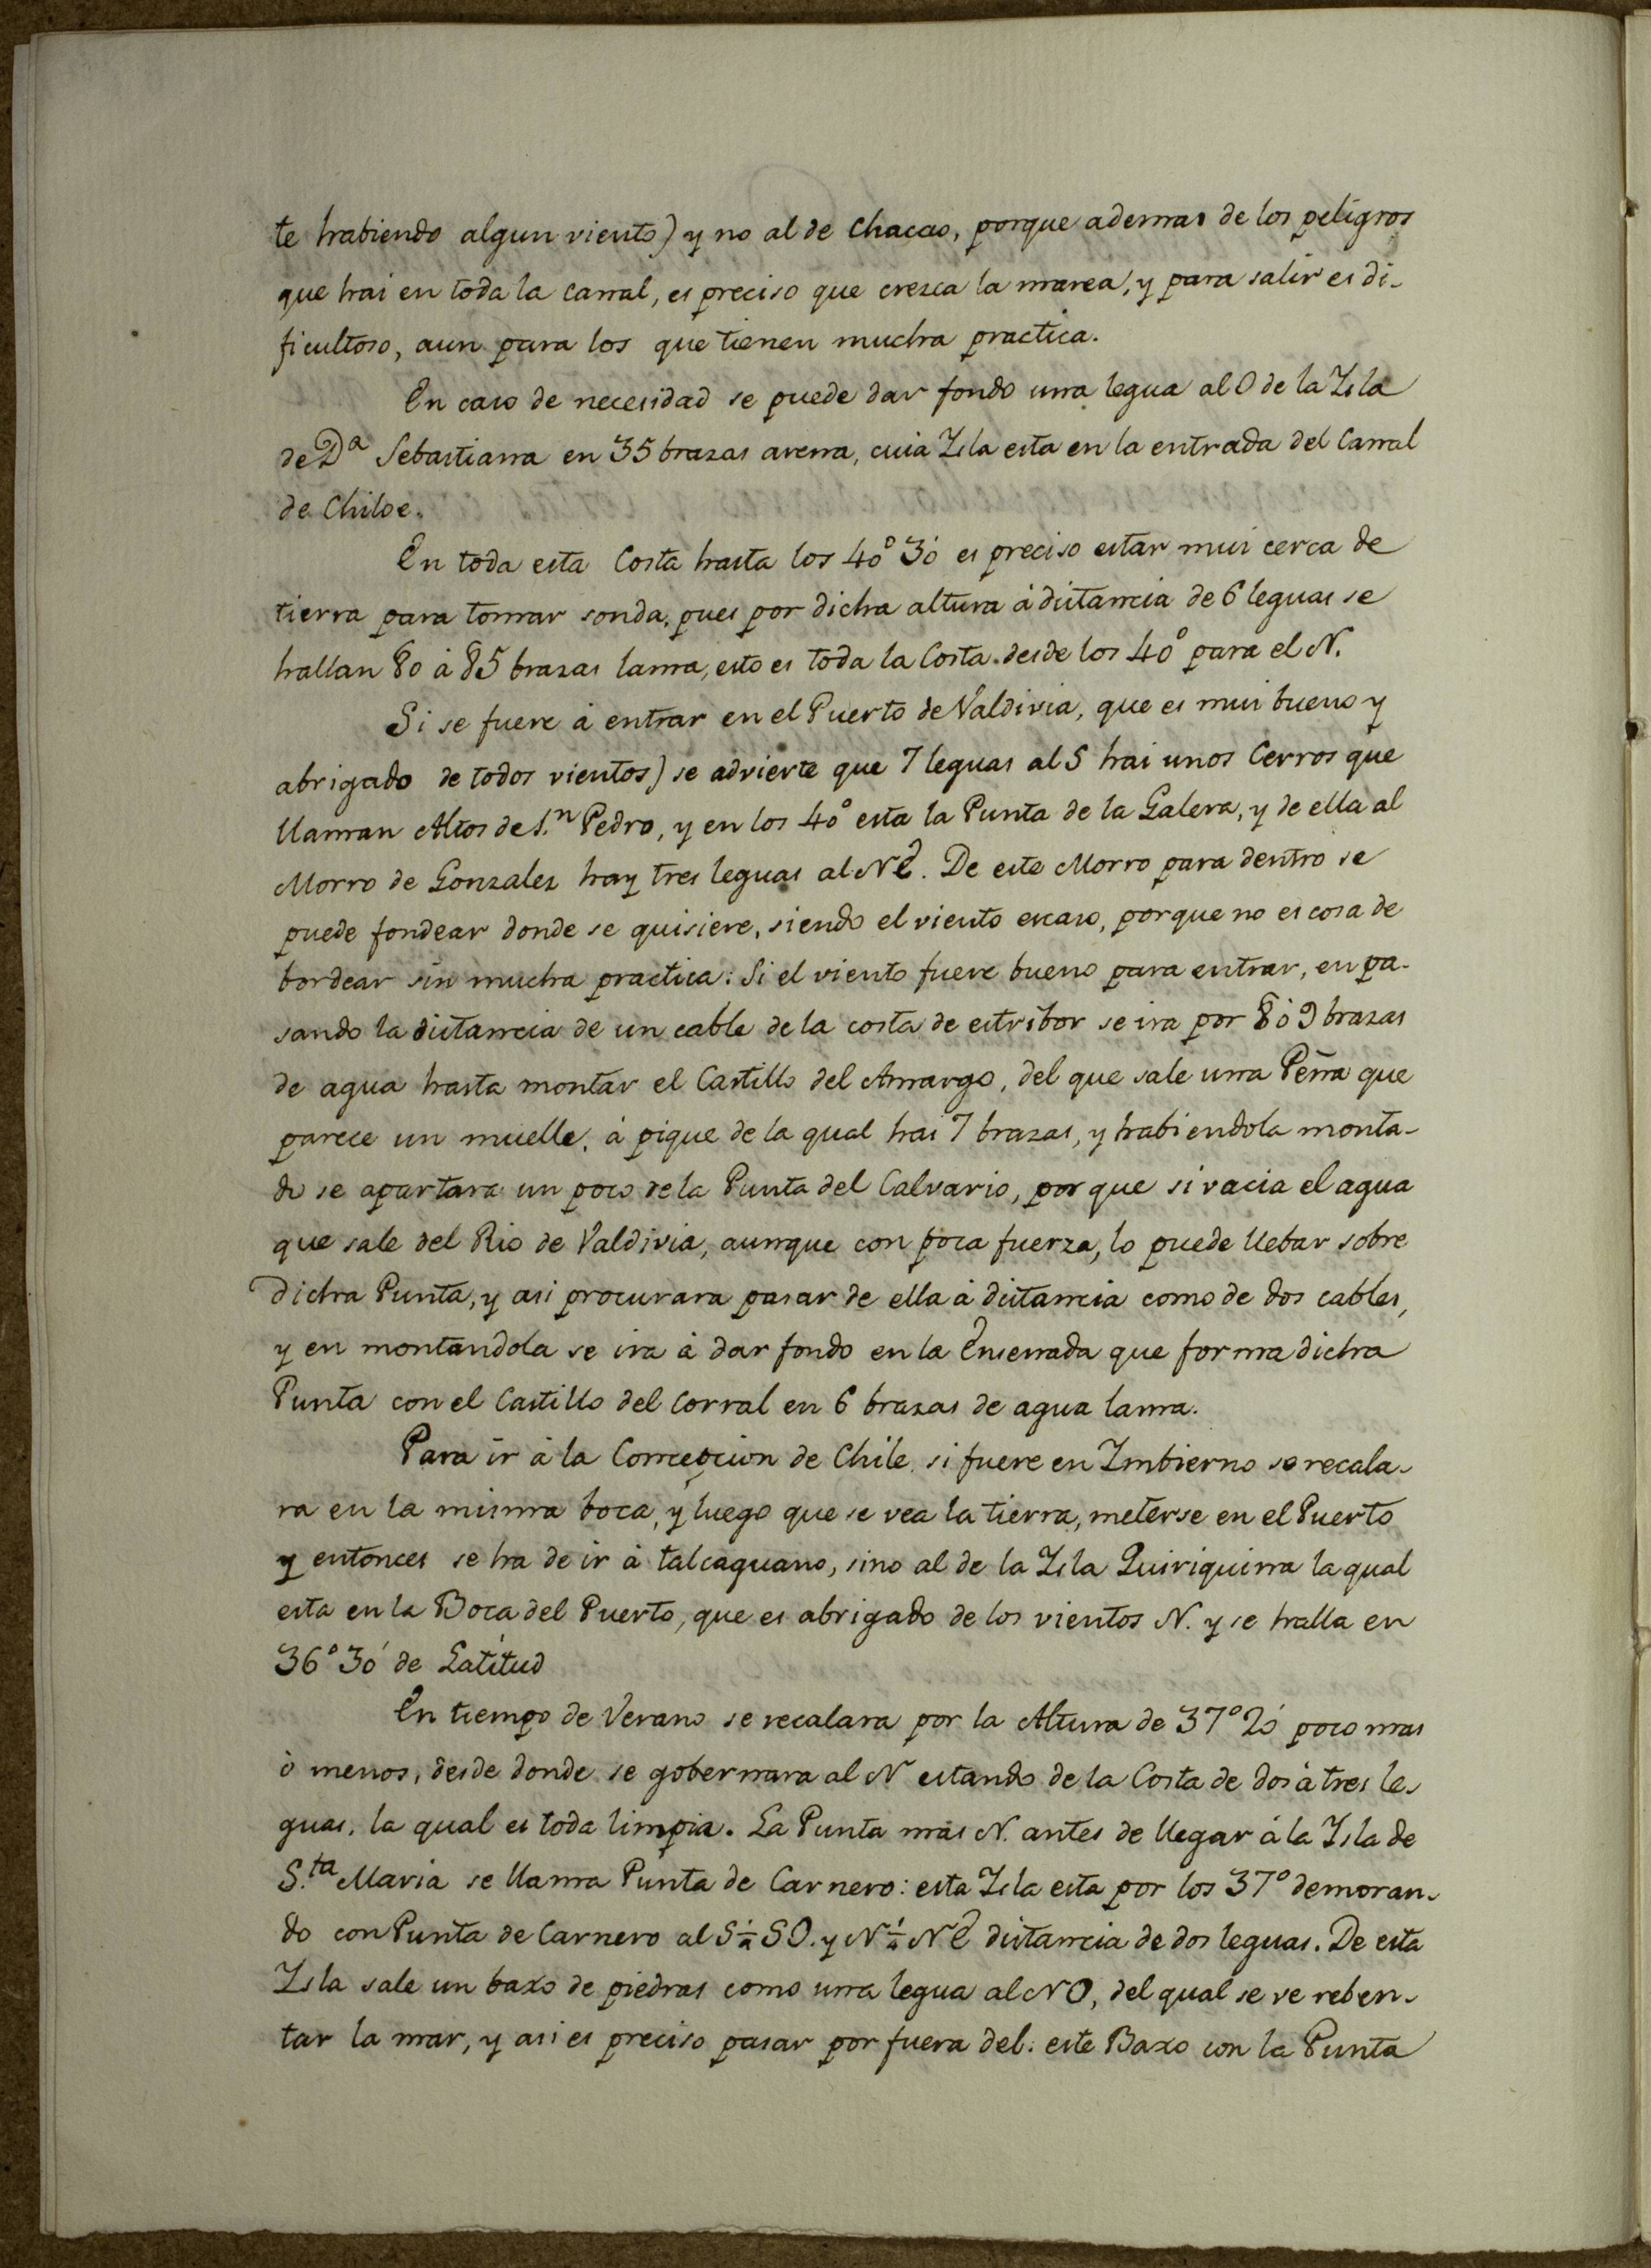 te habiendo algun viento) y no al de Chacao, porque ademas de los peligros
que hai en toda la canal, es preciso que cresca la marea, y para salir es di-
ficultoso, aun para los que tienen mucha practica.
En caso de necesidad se puede dar fondo una legua al O de la Isla
de Dª Sebastiana en 35 brazas arena, cuia Isla esta en la entrada del Canal
de Chiloe.
En toda esta Costa hasta los 40° 30' es preciso estar mui cerca de
tierra para tomar sonda, pues por dicha altura á distancia de 6 leguas se
hallan 80 á 85 brazas lama, esto es toda la Costa desde los 40° para el N.
Si se fuere á entrar en el Puerto de Valdivia, que es mui bueno y
abrigado de todos vientos) se advierte que 7 leguas al S hai unos Cerros que
llaman Altos de S.n Pedro, y en los 40° esta la Punta de la Galera, y de ella al
Morro de Gonzalez hay tres leguas al NE. De este Morro para dentro se
puede fondear donde se quisiere, siendo el viento escaso, porque no es cosa de
bordear sin mucha practica: Si el viento fuere bueno para entrar, en pa-
sando la distancia de un cable de la costa de estribor se ira por 8 ó 9 brazas
de agua hasta montar el Castillo del Amargo, del que sale una Peña que
parece un muelle, á pique de la qual hai 7 brazas, y habiendola monta-
do se apartara un poco de la Punta del Calvario, por que si vacia el agua
que sale del Rio de Valdivia, aunque con poca fuerza, lo puede llebar sobre
dicha Punta, y asi procurara pasar de ella á distancia como de dos cables,
y en montandola se ira á dar fondo en la Ensenada que forma dicha
Punta con el Castillo del Corral en 6 brazas de agua lama.
Para ir á la Concepcion de Chile, si fuere en Imbierno se recala-
ra en la misma boca, y luego que se vea la tierra, meterse en el Puerto
y entonces se ha de ir á talcaguano, sino al de la Isla Quiriquina la qual
esta en la Boca del Puerto, que es abrigado de los vientos N. y se halla en
36° 30' de Latitud
En tiempo de Verano se recalara por la Altura de 37° 20' poco mas
ó menos, desde donde se gobernara al N estando de la Costa de dos á tres le-
guas, la qual es toda limpia. La Punta mas N. antes de llegar á la Isla de
S.ta Maria se llama Punta de Carnero: esta Isla esta por los 37° demoran-
do con Punta de Carnero al S ¼ SO. y N ¼ NE distancia de dos leguas. De esta
Isla sale un baxo de piedras como una legua al NO, del qual se ve reben-
tar la mar, y asi es preciso pasar por fuera del: este Baxo con la Punta